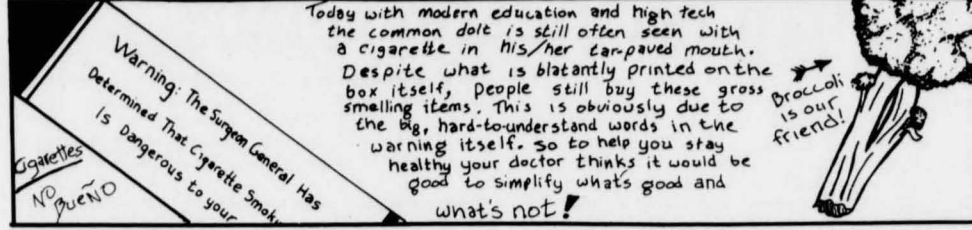 Warning: The Surgeon General Has
Determined That Cigarette
Is Dangerous to your
Cigarettes
NO
BUEÑO
Today with modern education and high tech
the common dolt is still often seen with
a cigarette in his/her tar-paved mouth.
Despite what is blatantly printed on the
box itself, people still buy these gross
smelling items. This is obviously due to
the big, hard-to-understand words in the
warning itself. So to help you stay
healthy your doctor thinks it would be
good to simplify what's good and
what's not!
Broccoli
is our
friend!